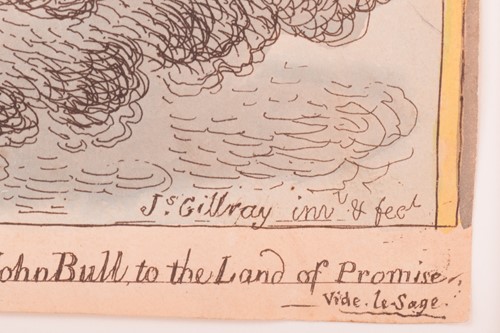 Js. Gillray invt & fect
John Bull, to the Land of Promise,
Vide. le Sage.